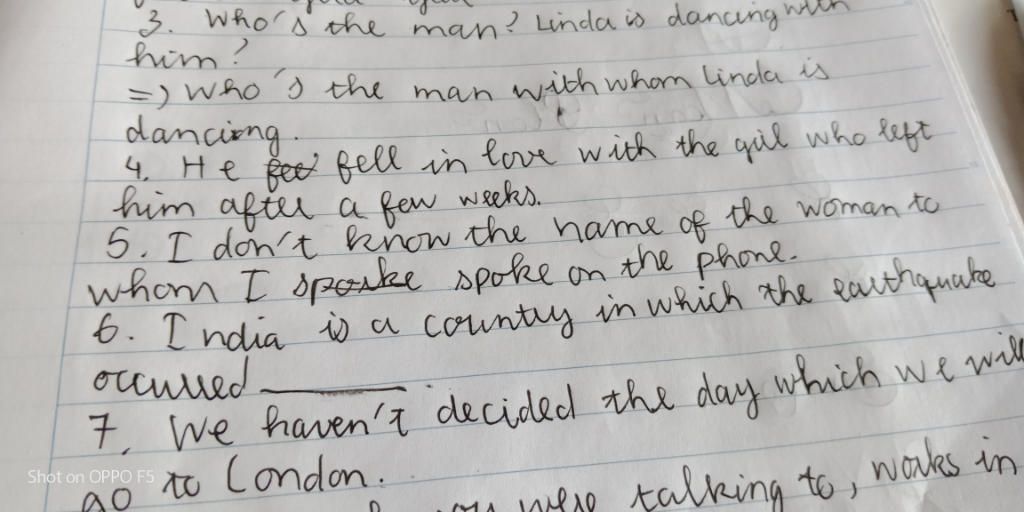 3. Who's the man? Linda is dancing with
him?
=) Who's the man with whom Linda is
dancing.
4. He fell in love with the girl who left
him after a few weeks.
5. I don't know the name of the woman to
whom I spoke spoke on the phone.
6. India is a country in which the earthquake
occurred
7. We haven't decided the day which we will
go to London.
you were talking to, works in
Shot on OPPO F5